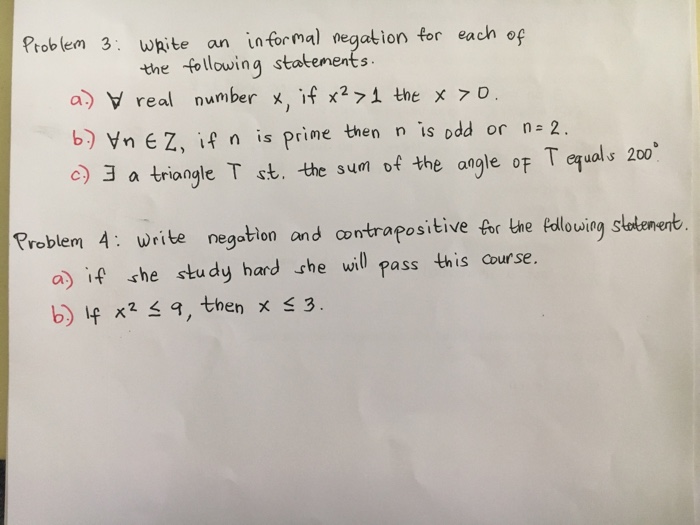 Problem 3: Write an informal negation for each of
the following statements.
a.) ∀ real number x, if x² > 1 the x > 0.
b.) ∀n ∈ Z, if n is prime then n is odd or n = 2.
c.) ∃ a triangle T s.t. the sum of the angle of T equals 200°
Problem 4: Write negation and contrapositive for the following statement.
a.) if she study hard she will pass this course.
b.) If x² ≤ 9, then x ≤ 3.